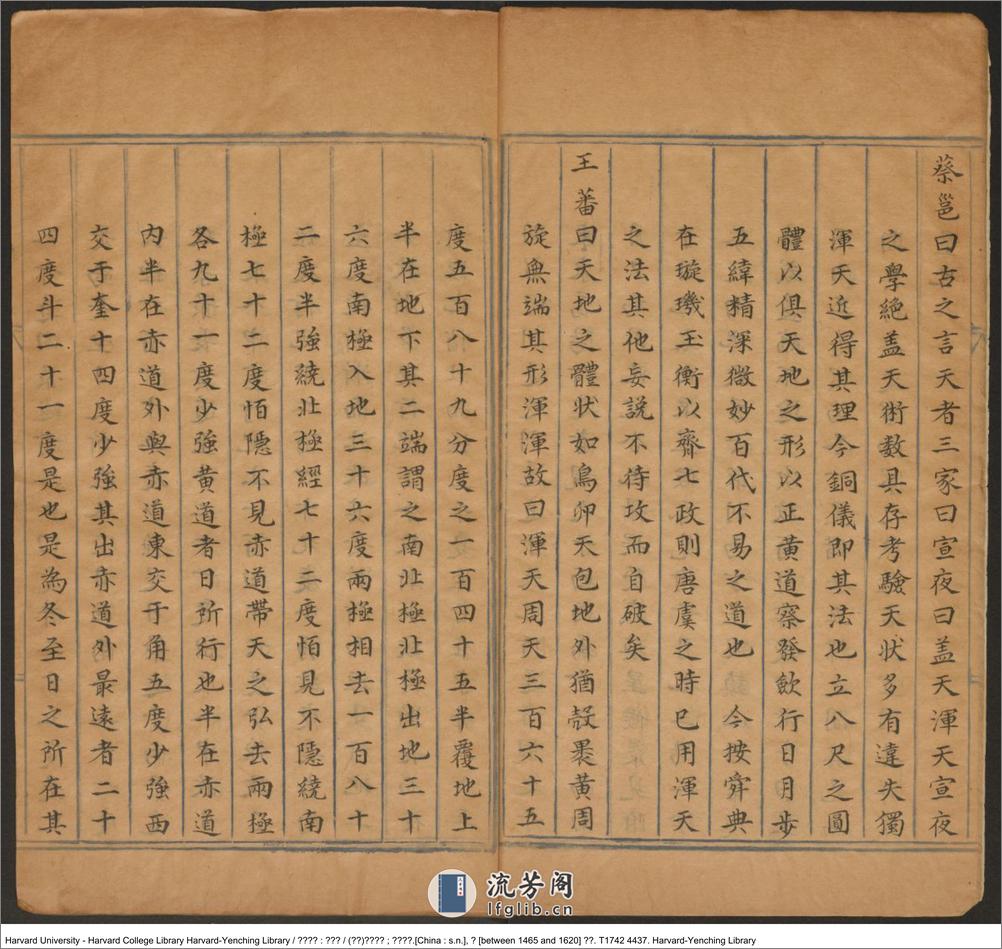 蔡邕曰古之言天者三家曰宣夜曰盖天渾天宣夜
之學絕盖天術數具存考驗天状多有違失獨
渾天近得其理今銅儀即其法也立八尺之圓
體以俱天地之形以正黄道察發飲行日月步
五緯精深微妙百代不易之道也今按舜典
在璇璣玉衡以齊七政則唐虞之時已用渾天
之法其他妄說不待攻而自破矣
王蕃曰天地之體状如鳥卵天包地外猶殼褁黄周
旋無端其形渾渾故曰渾天周天三百六十五
度五百八十九分度之一百四十五半覆地上
半在地下其二端謂之南北極北極出地三十
六度南極入地三十六度兩極相去一百八十
二度半強繞北極經七十二度怕見不隱繞南
極七十二度怕隱不見赤道帶天之弘去兩極
各九十一度少強黄道者日所行也半在赤道
内半在赤道外與赤道東交于角五度少強西
交于奎十四度少強其出赤道外最遠者二十
四度斗二十一度是也是為冬至日之所在其
流芳阁
lfglib.cn
Harvard University - Harvard College Library Harvard-Yenching Library / ???? : ??? / (??)???? ; ????.[China : s.n.], ? [between 1465 and 1620] ??. T1742 4437. Harvard-Yenching Library